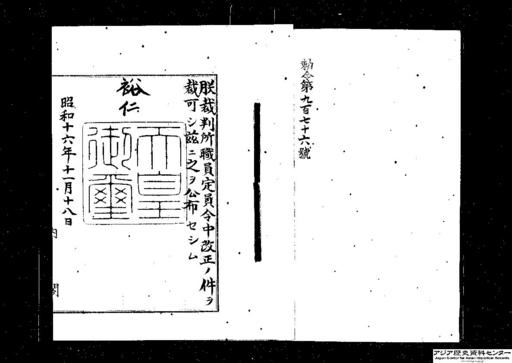 勅令第九百七十六號
朕裁判所職員定員令中改正ノ件ヲ
裁可シ茲ニ之ヲ公布セシム
裕仁
天皇
御璽
昭和十六年十一月十八日
内閣
アジア歴史資料センター
Japan Center for Asian Historical Records